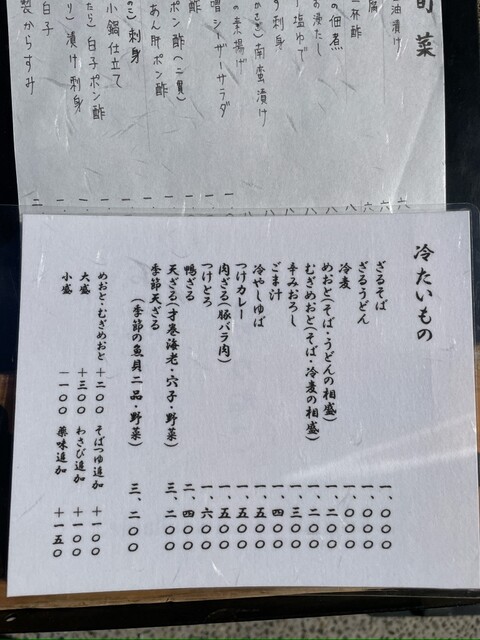 旬菜
油漬け
腐
一杯酢
の佃煮
お浸し
塩ゆで
の刺身
南蛮漬け
の素揚げ
噌シーザーサラダ
酢
ポン酢(二貫)
あん肝ポン酢
こ)刺身
小鍋仕立て
たら)白子ポン酢
り)漬け刺身
白子
製からすみ
冷たいもの
ざるそば 一、〇〇〇
ざるうどん 一、〇〇〇
冷麦 一、〇〇〇
めおと(そば・うどんの相盛) 一、二〇〇
むぎめおと(そば・冷麦の相盛) 一、二〇〇
辛みおろし 一、三〇〇
ごま汁 一、四〇〇
冷やしゆば 一、五〇〇
つけカレー 一、五〇〇
肉ざる(豚バラ肉) 一、五〇〇
つけとろ 一、六〇〇
鴨ざる 二、四〇〇
天ざる(才巻海老・穴子・野菜) 三、二〇〇
季節天ざる
(季節の魚貝二品・野菜) 三、二〇〇
めおと・むぎめおと +二〇〇 そばつゆ追加 +一〇〇
大盛 +三〇〇 わさび追加 +一〇〇
小盛 -一〇〇 薬味追加 +一五〇